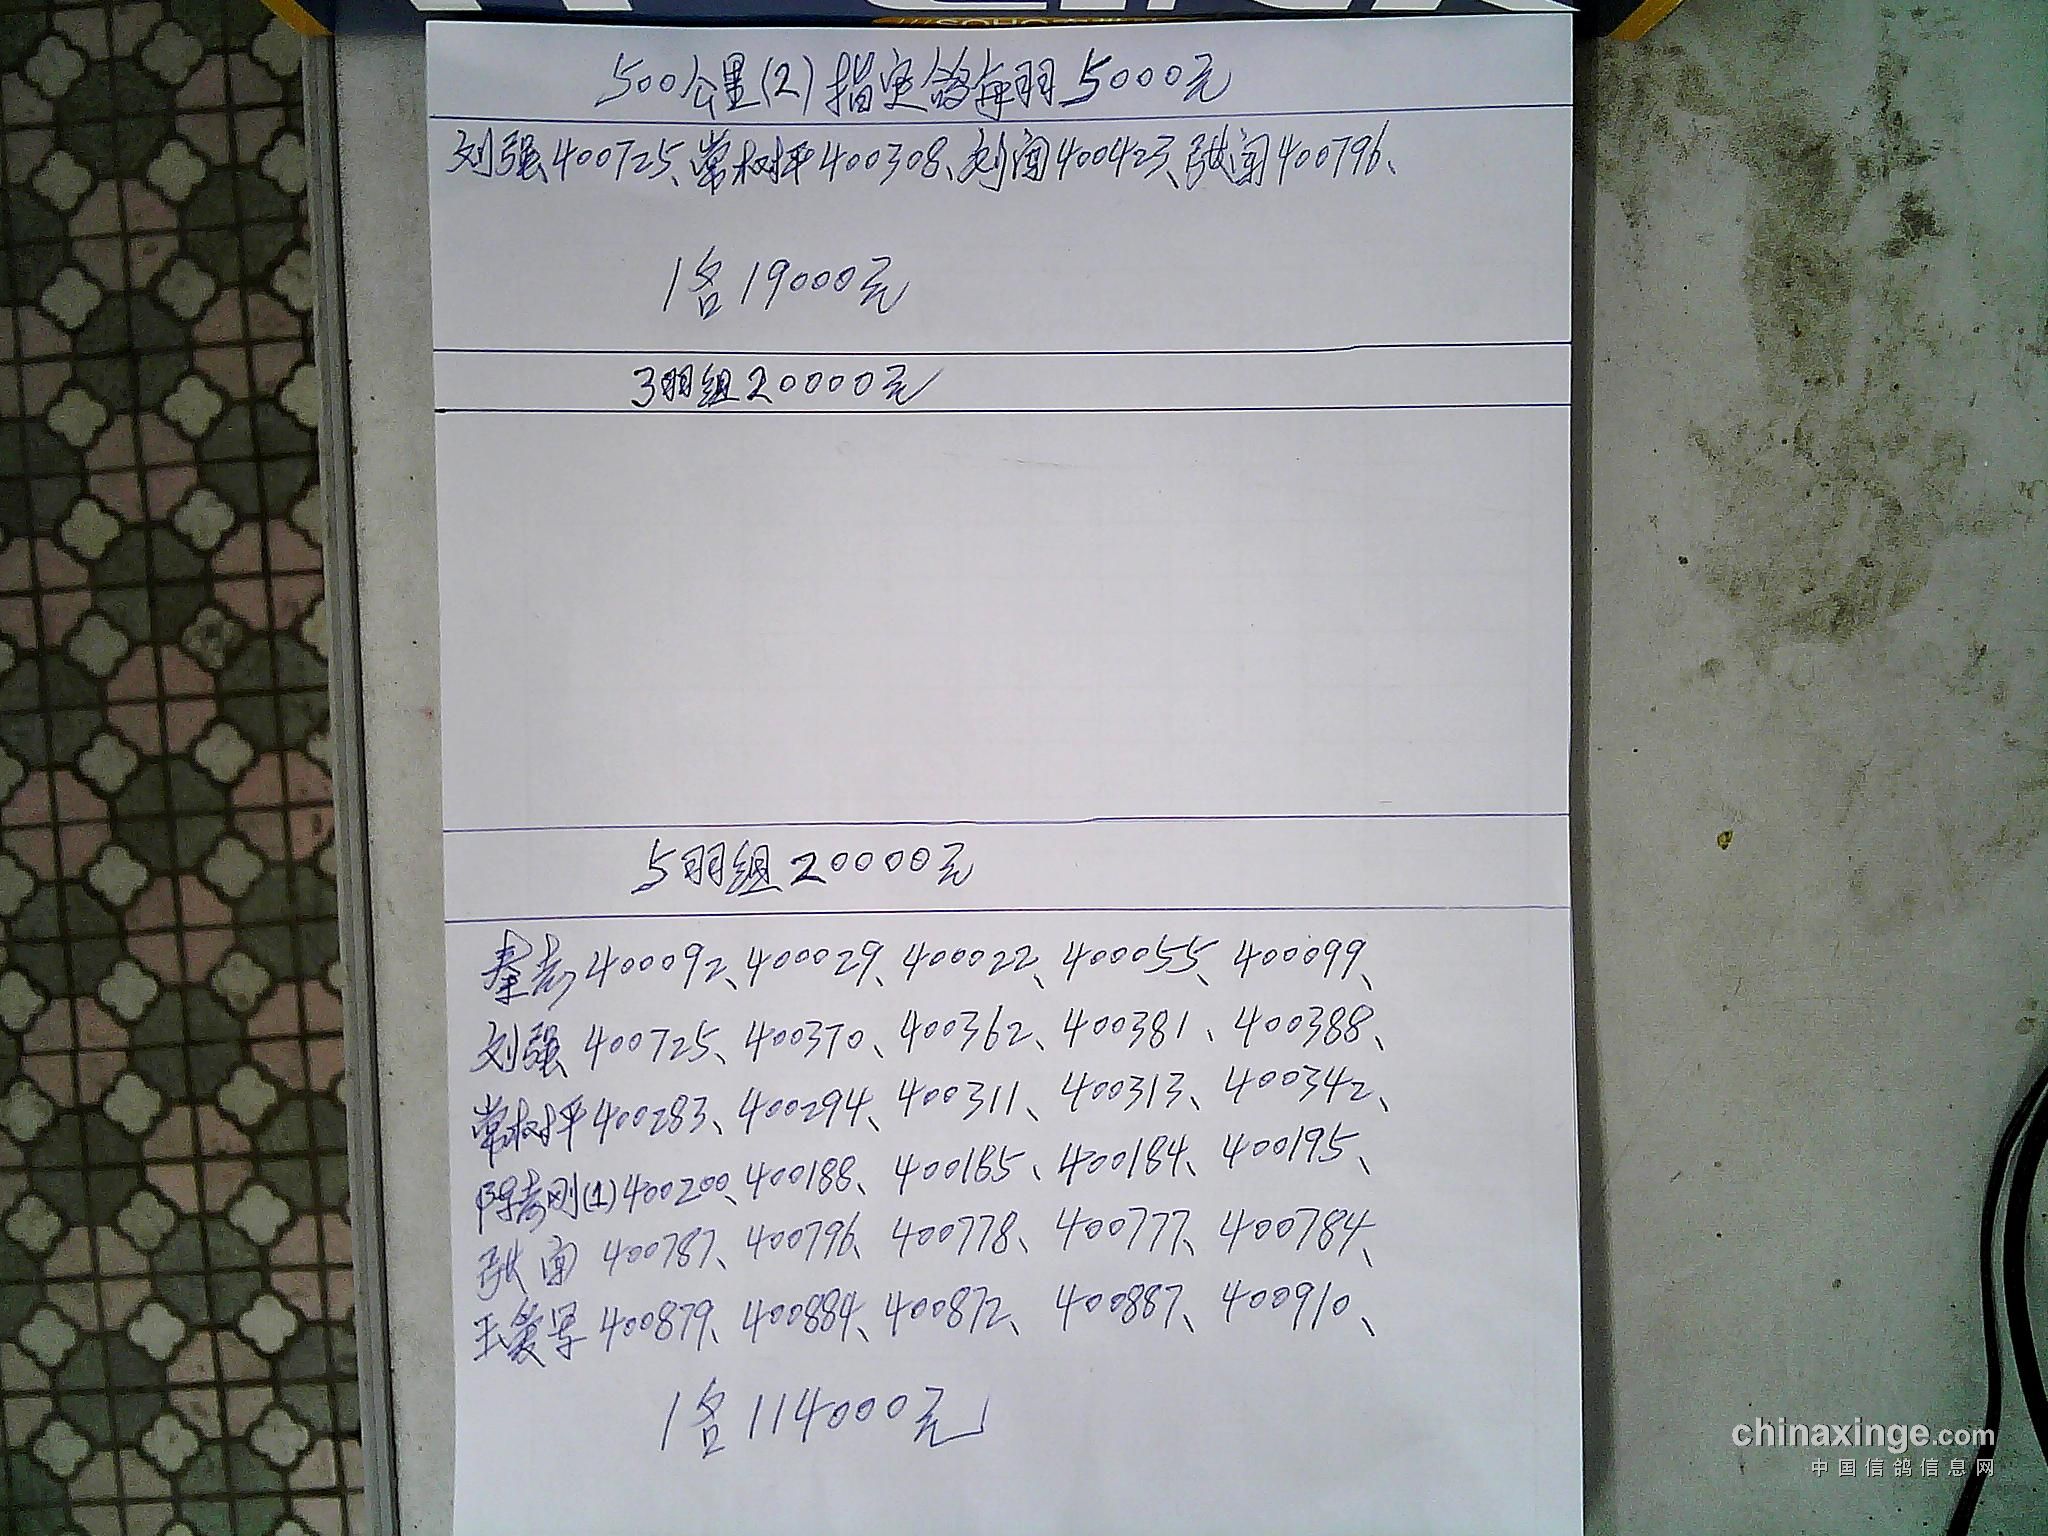 SOHO
500公里(2)指定鸽每羽5000元
刘强400725、常树坪400308、刘闯400423、张闯400796、
1名19000元
3羽组20000元
5羽组20000元
秦 400092、400029、400022、400055、400099、
刘强 400725、400370、400362、400381、400388、
常树坪400283、400294、400311、400313、400342、
刚(1)400200、400188、400165、400184、400195、
张闯 400787、400796、400778、400777、400784、
王 军 400879、400884、400872、400887、400910、
1名114000元
chinaxinge.com
中国信鸽信息网